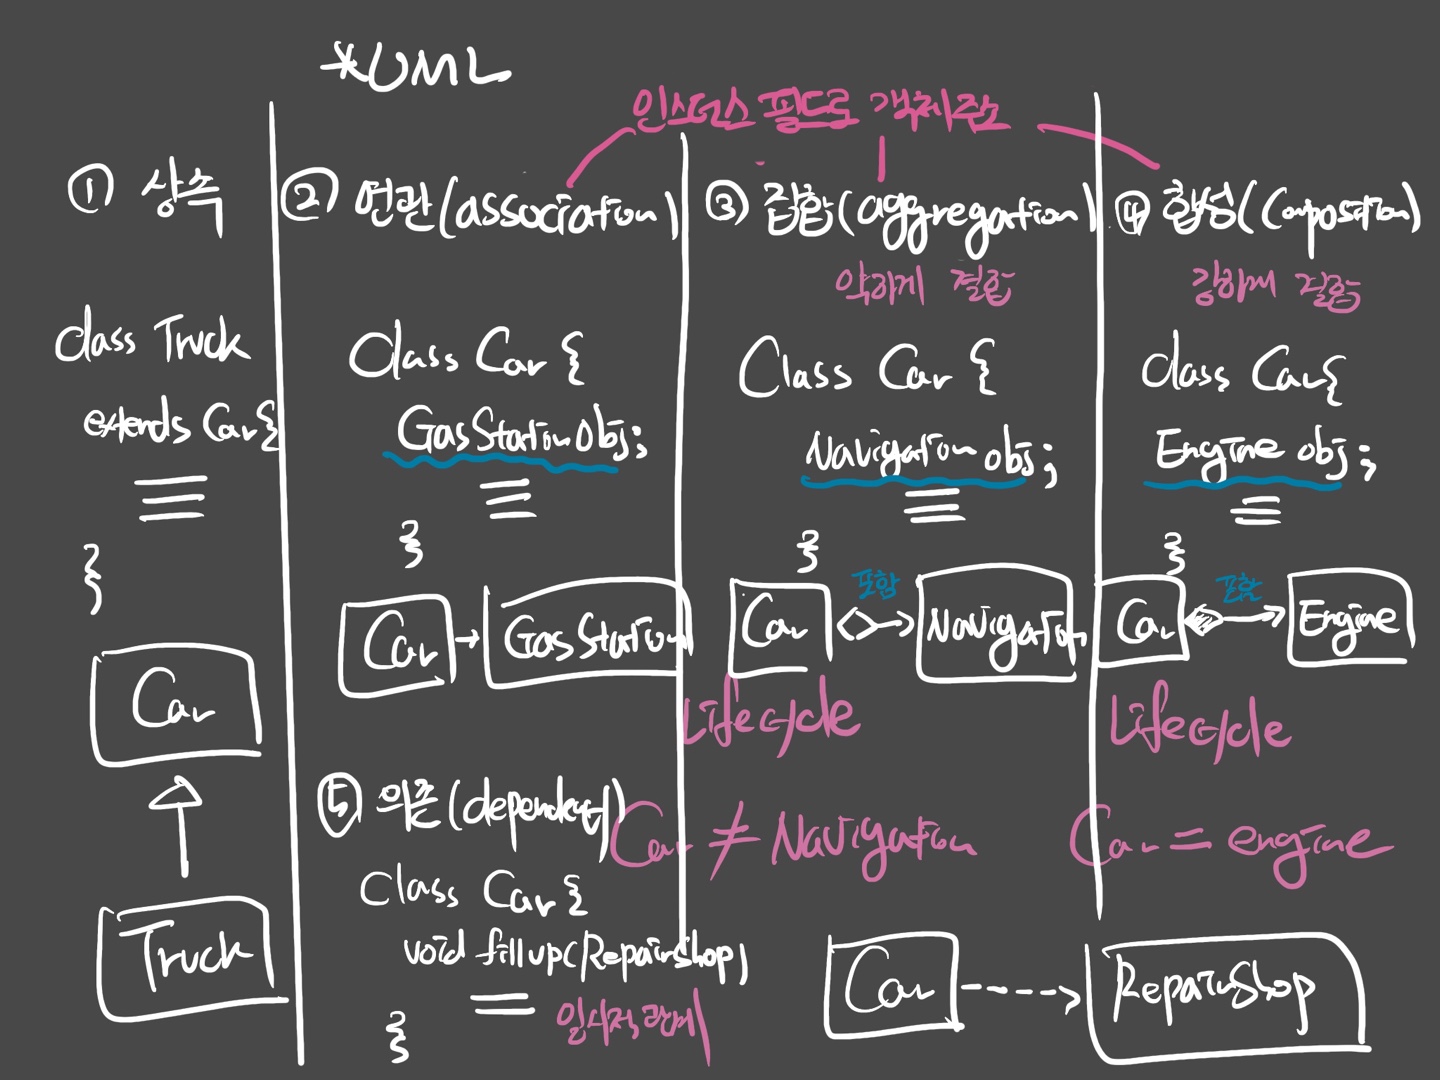 *UML
인스턴스 필드로 객체주소
① 상속
class Truck
extends Car{
}
Car
Truck
② 연관(association)
Class Car {
GasStation obj;
}
Car
GasStation
③ 집합(aggregation)
약하게 결합
Class Car {
Navigation obj;
}
Car
포함
Navigation
Lifecycle
Car ≠ Navigation
④ 합성(Composition)
강하게 결합
class Car{
Engine obj;
}
Car
포함
Engine
Lifecycle
Car = engine
⑤ 의존(dependent)
Class Car {
void fillup(RepairShop)
일시적 관계
}
Car
RepairShop